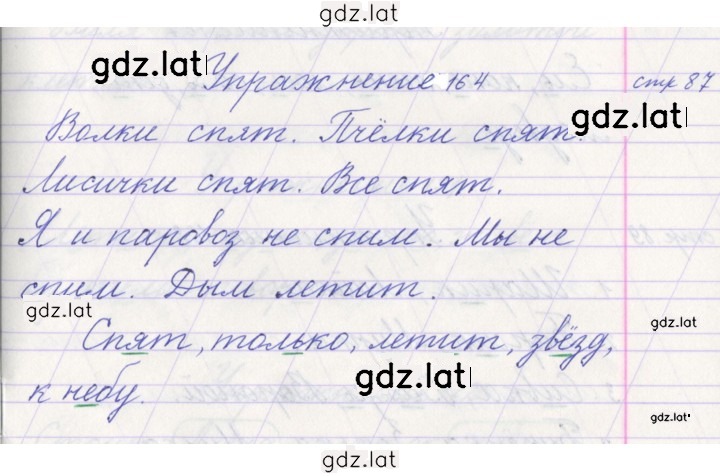 gdz.lat
gdz.lat Упражнение 164 стр 87
Волки спят. Пчёлки спят. gdz.lat
Лисички спят. Все спят.
Я и паровоз не спим. Мы не
спим. Дым летит.
gdz.lat
Спят, только, летит, звёзд, gdz.lat
к небу. gdz.lat
gdz.lat
gdz.lat